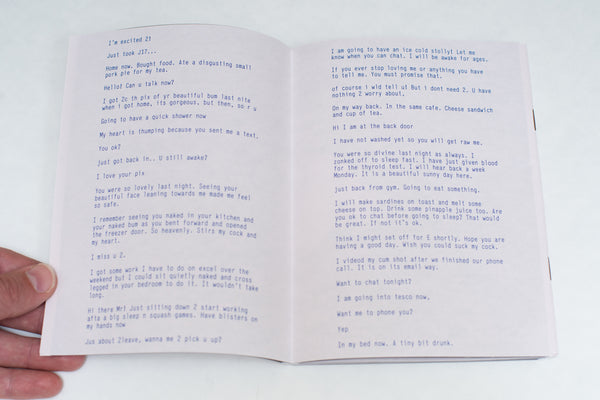 I'm excited 2!
Just took J17...
Home now. Bought food. Ate a disgusting small
pork pie for my tea.
Hello! Can u talk now?
I got 2c th pix of yr beautiful bum last nite
when i got home, its gorgeous, but then, so r u
Going to have a quick shower now
My heart is thumping because you sent me a text.
You ok?
Just got back in.. U still awake?
I love your pix
You were so lovely last night. Seeing your
beautiful face leaning towards me made me feel
so safe.
I remember seeing you naked in your kitchen and
your naked bum as you bent forward and opened
the freezer door. So heavenly. Stirs my cock and
my heart.
I miss u 2.
I got some work I have to do on excel over the
weekend but I could sit quietly naked and cross
legged in your bedroom to do it. It wouldn't take
long.
Hi there Mr! Just sitting down 2 start working
afta a big sleep n squash games. Have blisters on
my hands now
Jus about 2leave, wanna me 2 pick u up?
I am going to have an ice cold stolly! Let me
know when you can chat. I will be awake for ages.
If you ever stop loving me or anything you have
to tell me. You must promise that.
of course i wld tell u! But i dont need 2. U have
nothing 2 worry about.
On my way back. In the same cafe. Cheese sandwich
and cup of tea.
Hi I am at the back door
I have not washed yet so you will get raw me.
You were so divine last night as always. I
zonked off to sleep fast. I have just given blood
for the thyroid test. I will hear back a week
Monday. It is a beautiful sunny day here.
just back from gym. Going to eat something.
I will make sardines on toast and melt some
cheese on top. Drink some pinapple juice too. Are
you ok to chat before going to sleep? That would
be great. If not it's ok.
Think I might set off for E shortly. Hope you are
having a good day. Wish you could suck my cock.
I videod my cum shot after we finished our phone
call. It is on its email way.
Want to chat tonight?
I am going into tesco now.
Want me to phone you?
Yep
In my bed now. A tiny bit drunk.